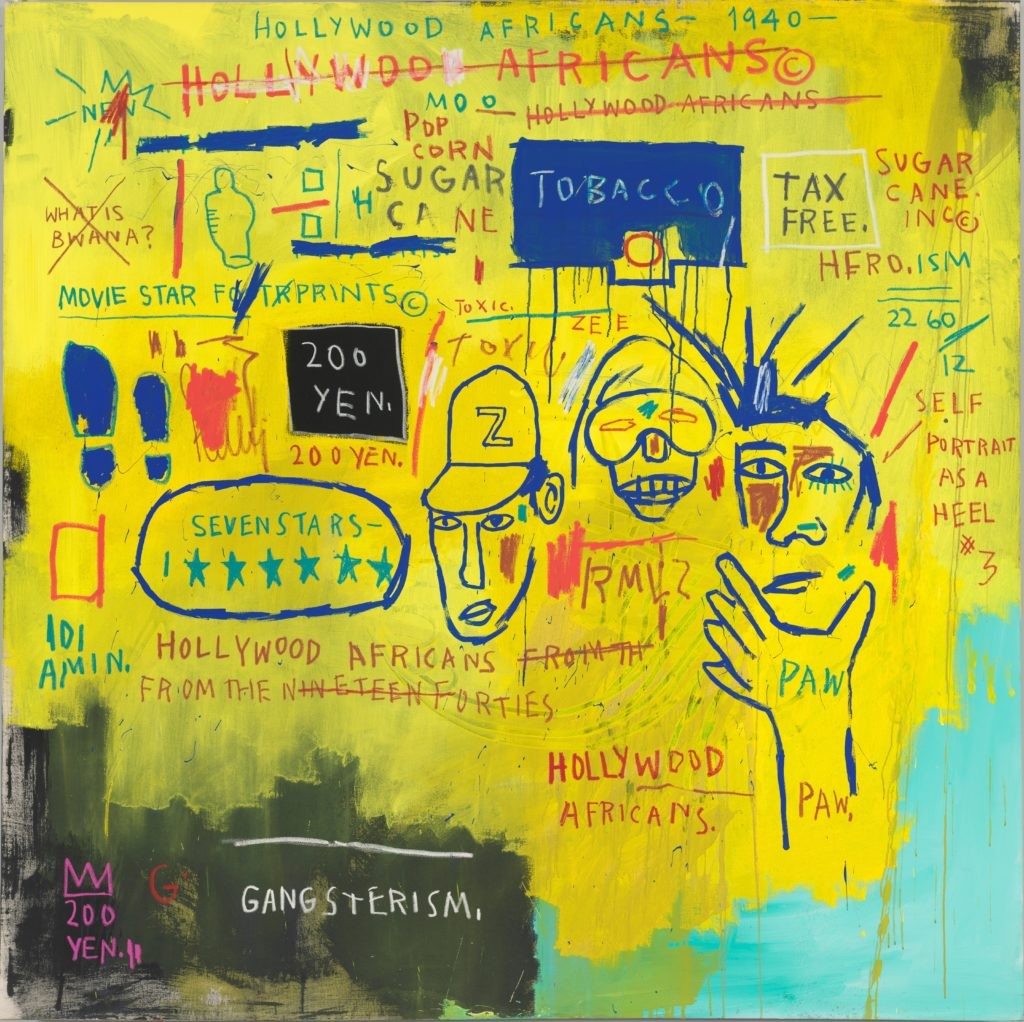 HOLLYWOOD AFRICANS- 1940-
HOLLYWOOD AFRICANS©
NEW
MOO
HOLLYWOOD AFRICANS
POP
CORN
SUGAR
CANE
TOBACCO
TAX
FREE.
SUGAR
CANE.
INC©
WHAT IS
BWANA?
HERO.ISM
MOVIE STAR FOOTPRINTS©
TOXIC.
22 60
12
200
YEN.
200 YEN.
Z
SELF
PORTRAIT
AS A
HEEL
#3
SEVEN STARS-
1★★★★★★
RMLZ
IDI
AMIN.
HOLLYWOOD AFRICANS FROM TH
FROM THE NINETEEN FORTIES
PAW
HOLLYWOOD
AFRICANS.
PAW.
G
200
YEN.
GANGSTERISM.